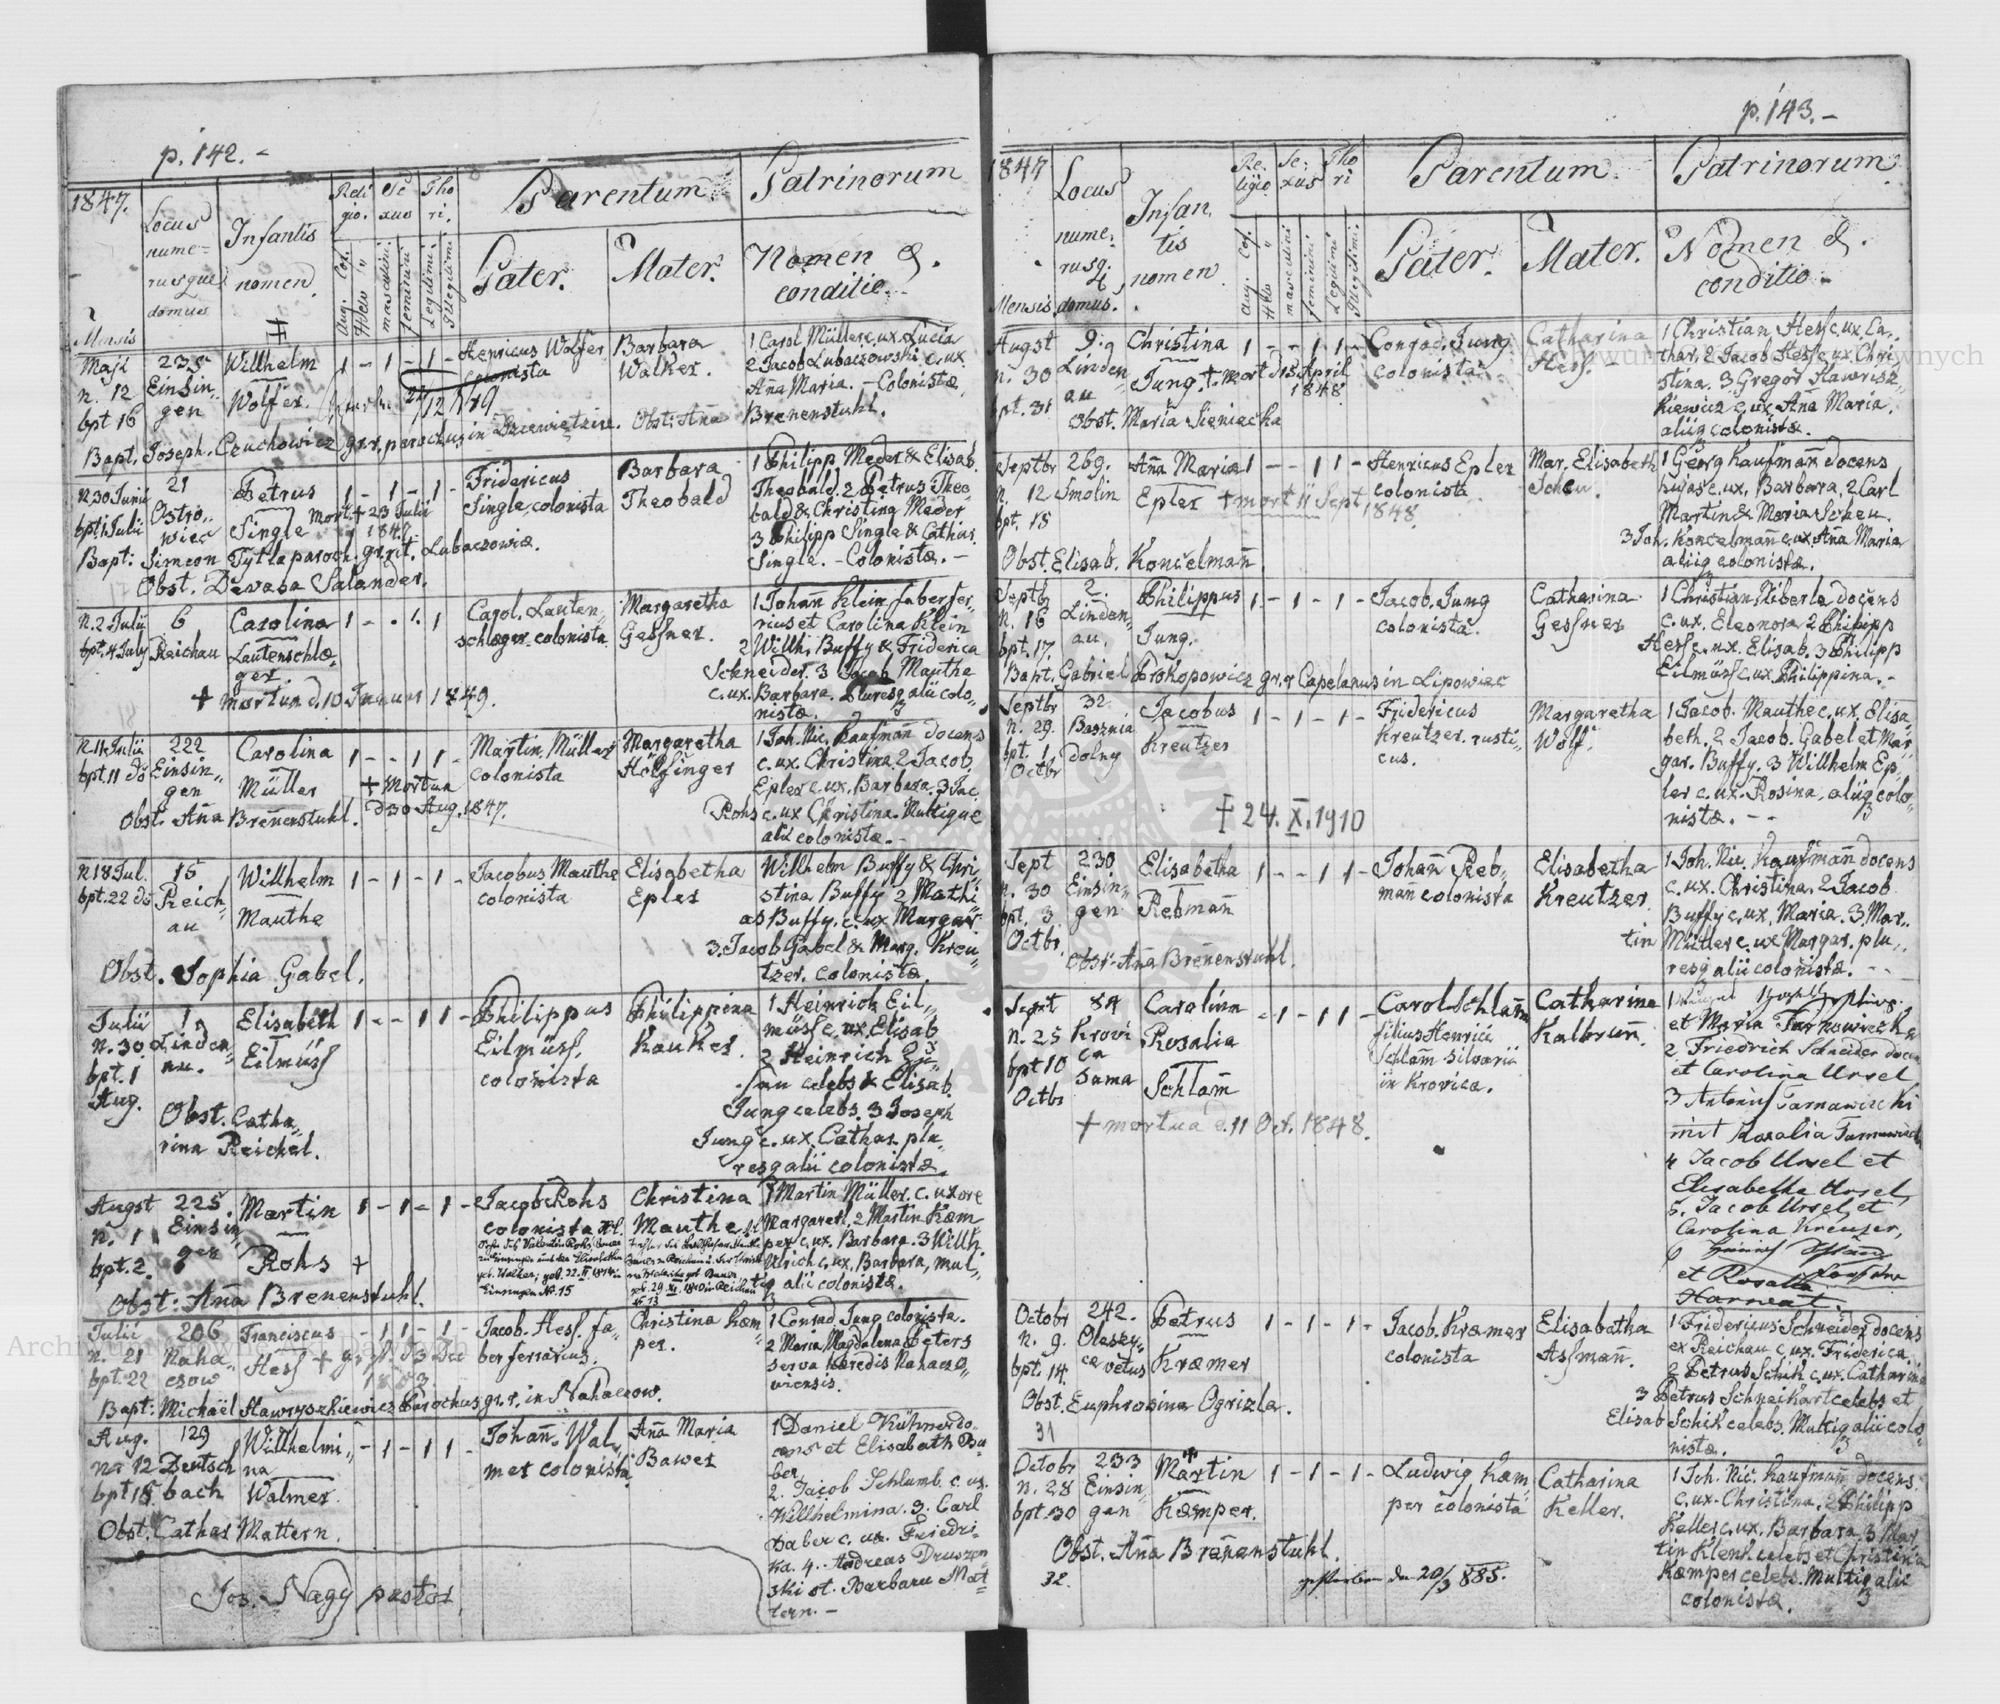 p. 142.
1847.
Locus numerusque domus
Infantis nomen
Religio.
Sexus
Thori.
Parentum.
Patrinorum
Mensis
Aug. Cof.
Helv. "
masculini.
feminini
Legitimi
Illegitimi
Pater.
Mater.
Nomen &. conditio.
Maji n. 12 bpt 16
235 Einsin„ gen
Willhelm Wolfer.
1 - 1 - 1 -
Henricus Wolfer colonista
Barbara Walker.
1 Carol Müller c. ux. Lucia
2 Jacob Lubaczowski c. ux.
Aña Maria. - Colonistæ
Obst: Aña Brenenstuhl.
Bapt. Joseph. Czuchowicz gr. r. parochus in
N 30 Junii bpt. 1 Julii
21 Ostro„ wiec
Petrus Single
1 - 1 - 1 -
Mort. + 23 Julii 1847.
Fridericus Single, colonista
Barbara Theobald
1 Philipp Meder & Elisab.
Theobald. 2 Petrus Theo
bald & Christina Meder
3 Philipp Single & Cathar.
Single. - Colonistæ. -
Bapt: Simeon Tytla paroch. gr. rit. Lubaczowiæ.
Obst. Dewaba Salander.
N. 2 Julii bpt. 4 July
6 Reichau
Carolina Lautenschlæ„ ger.
Carol. Lauten„ schlæger. colonista
Margaretha Gessner.
1 Johañ Klein faber fer„
rius et Carolina Klein
2 Willh. Buffy & Friderica
Schneider. 3 Jacob Mauthe
c. ux. Barbara. Pluresq alii colo„
nistæ.
+ mortua d. 10 Januar 1849.
N. 11 Julii bpt. 11 do
222 Einsin„ gen
Carolina Müller
1 - - 1 1 -
+ Mortua d 30 Aug. 1847.
Martin. Müller colonista
Margaretha Hölfinger
1 Joh. Nic. Kaufmañ docens
c. ux. Christina. 2 Jacob
Epler c. ux. Barbara. 3 Jac.
Rohs c. ux Christina. Multique
alii colonistæ. -
Obst. Aña Breñenstuhl.
N 18 Jul. bpt. 22 do
15 Reich„ au
Willhelm Mauthe
1 - 1 - 1 -
Jacobus Mauthe colonista
Elisabetha Epler
Willhelm Buffy & Chri„
stina Buffy 2 Mathi
as Buffy. c. ux Margar.
3. Jacob Gabel & Marg. Kreu„
tzer. colonistæ
Obst. Sophia Gabel.
Julii n. 30. bpt. 1 Aug.
1. Linden„ au.
Elisabeth Eilmüss
1 - - 1 1 -
Philippus Eilmüss, colonista
Philippina Kauker.
1 Heinrich Eil„
müss c. ux. Elisab.
2 Heinrich
celebs & Elisab.
Jung celebs. 3 Joseph
Jung c. ux. Cathar. plu„
resq alii colonistæ.
Obst. Catha„ rina Reichel.
Augst n. 1 bpt. 2.
225. Einsin gen
Martin Rohs +
1 - 1 - 1 -
Jacob Rohs colonista
Christina Mauthe
1 Martin Müller. c. uxore
Margareth. 2 Martin Kæm
per c. ux. Barbara. 3 Willh.
Ulrich c. ux. Barbara, mul„
tiq alii colonistæ.
Obst: Aña Brenenstuhl.
Julii n. 21 bpt. 22
206 Naha„ czow
Franciscus Hess
- 1 1 - 1 -
Jacob. Hess. fa„ ber ferrarius.
Christina Kæm„ per.
1 Conrad Jung colonista.
2 Maria Magdalena Peters
serva heredis Nahaczo„
viensis.
Bapt: Michaël Hawryszkiewicz Parochus gr. r. in Nahaczow.
Aug. na 12 bpt 15
129 Deutsch bach
Willhelmi„ na Walmer.
- 1 - 1 1 -
Johañ. Wal„ mer colonista
Aña Maria Bawer
1 Daniel Kühner do
cens et Elisabeth Da
ber
2. Jacob Schlumb. c. ux.
Willhelmina. 3. Carl
Daber c. ux. Friedri„
ka. 4. Andreas Druszen
ski et. Barbara Mat„
tern. -
Obst. Cathar Mattern.
Jos. Nagy pastor.
p. 143. -
1847
Locus numerusq domus.
Infantis nomen.
Religio.
Sexus
Thori
Parentum.
Patrinorum
Mensis
Aug. Cof.
Helv. "
masculini
feminini
Legitimi
Illegitimi.
Pater.
Mater.
Nomen &. conditio
Augst n. 30 bpt. 31
9. Linden„ au
Christina Jung.
1 - - 1 1 -
+ Mort d 3 April 1848
Conrad. Jung. colonista
Catharina Hess.
1 Christian Hess c. ux. Ca„
thar. 2 Jacob Hess c. ux. Chri
stina. 3 Gregor Hawrisz„
kiewicz c. ux. Aña Maria.
aliiq colonistæ.
Obst. Maria Sieniacka
Septbr n. 12 bpt. 18
269. Smolin
Aña Maria Epler
1 - - 1 1 -
+ mort 11 Sept. 1848.
Henricus Epler colonista
Mar. Elisabeth Scheu.
1 Georg Kaufmañ docens
hujas c. ux. Barbara, 2 Carl
Martin & Maria Scheu.
3 Joh. Konzelmañ c. ux. Aña Maria
aliiq colonistæ.
Obst. Elisab. Konzelmañ.
Septb n. 16 bpt. 17.
2. Linden„ au.
Philippus Jung.
1 - 1 - 1 -
Jacob. Jung colonista.
Catharina Gessner
1 Christian Hiberle docens
c. ux. Eleonora. 2 Philipp
Hess c. ux. Elisab. 3 Philipp
Eilmüss c. ux. Philippina. -
Bapt. Gabriel Prokopowicz gr. r Capelanus in Lipowiec
Septbr n. 29. bpt. 1 Octbr
32. Basznia dolny
Jacobus Kreutzer
1 - 1 - 1 -
Fridericus Kreutzer. rusti„ cus.
Margaretha Wolf.
1 Jacob. Mauthe c. ux. Elisa„
beth. 2 Jacob. Gabel et Mar„
gar. Buffy. 3 Willhelm Ep„
ler c. ux. Rosina, aliiq colo„
nistæ. - -
+ 24. X. 1910
Sept n. 30 bpt. 3 Octbr
230 Einsin„ gen
Elisabetha Rebmañ
1 - - 1 1 -
Johañ Reb„ mañ colonista
Elisabetha Kreutzer
1 Joh. Nic. Kaufmañ docens
c. ux. Christina. 2 Jacob
Buffy c. ux. Maria. 3 Mar„
tin Müller c. ux Margar. plu„
resq alii colonistæ. - -
Obst. Aña Breñenstuhl.
Sept n. 25 bpt 10 Octbr
84 Krovi ca sama
Carolina Rosalia Schlam̃
- 1 - 1 1 -
Carol Schlam̃ filius Henrici Schlam silvarii in Krovica.
Catharina Kalbruñ.
et Maria Tarnawiecka
2. Friedrich Schneider docen
et Carolina Ursel
3 Antonius Tarnawiecki
mit Rosalia Tarnawieck
4 Jacob Ursel et
Elisabetha Ursel,
5. Jacob Ursel, et
Carolina Kreuzer,
6
et Rosalia
+ mortua d. 11 Oct. 1848.
Octobr n. 9. bpt. 14.
242. Oleszy„ ce vetus
Petrus Kræmer
1 - 1 - 1 -
Jacob. Kræmer colonista
Elisabetha Assmañ.
1 Fridericus Schneider docens
ex Reichau c. ux. Friderica.
2 Petrus Schik c. ux. Catharina
3 Petrus Schneikart celebs et
Elisab Schik celebs. Multiq alii colo„
nistæ.
Obst. Euphrosina Ogrizla.
31
Octobr n. 28 bpt. 30
233 Einsin„ gen
Martin Kæmper.
1 - 1 - 1 -
Ludwig Kæm„ per colonista
Catharina Keller.
1 Joh. Nic. Kaufmañ docens.
c. ux. Christina. 2 Philipp
Keller c. ux. Barbara 3 Mar
tin Klenk celebs et Christina
Kæmper celebs. Multiq alii
colonistæ.
Obst. Aña Breñenstuhl.
32.
gestorben den 20/3 885.